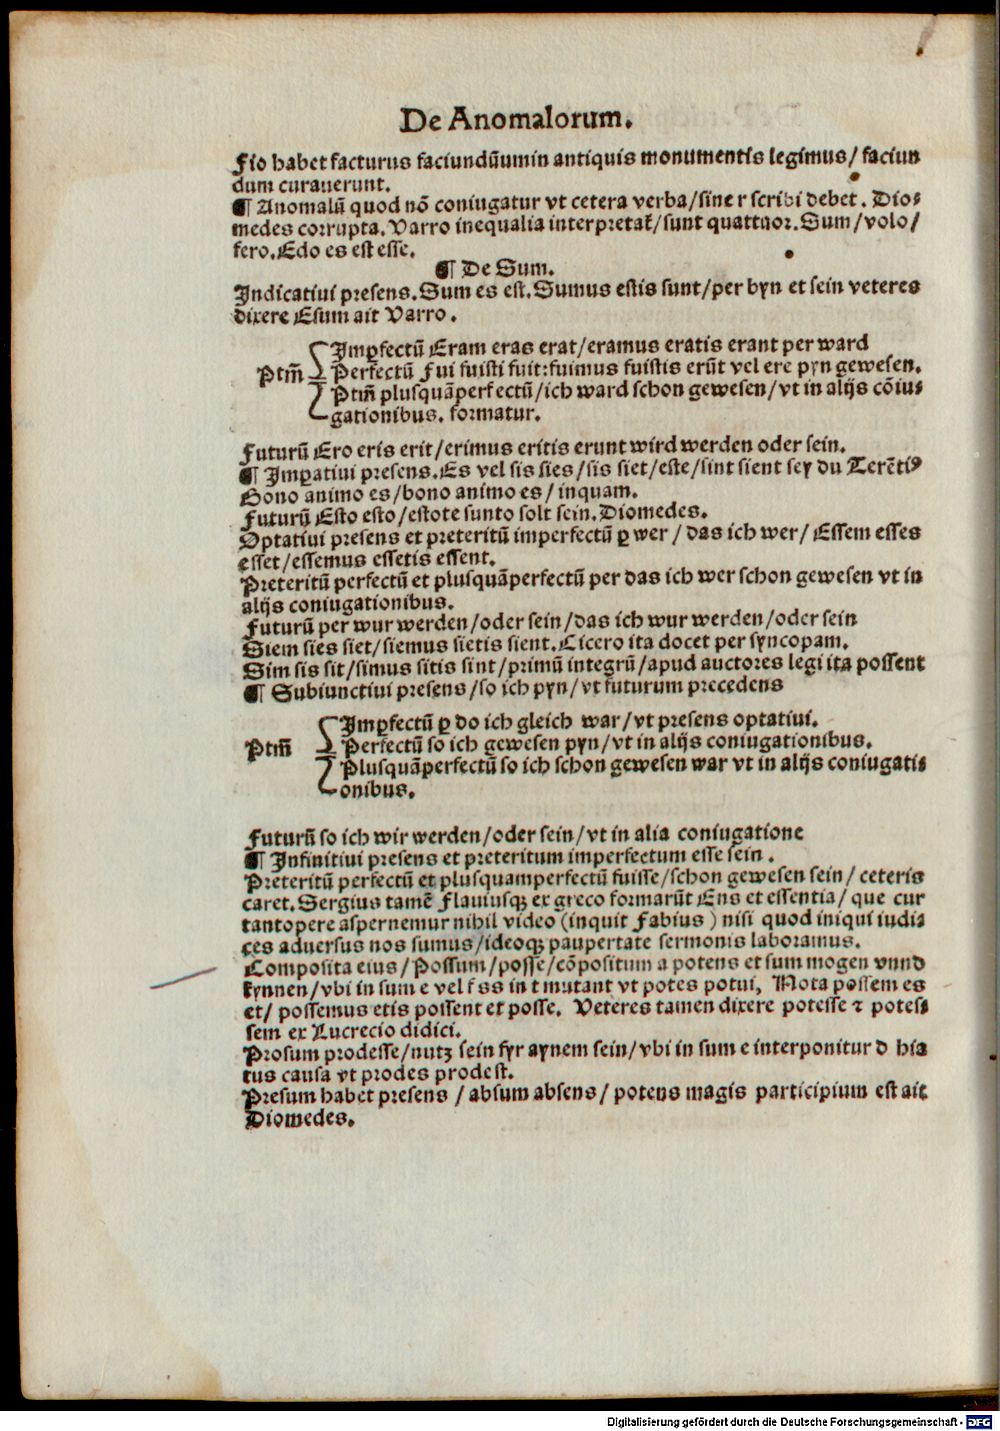 De Anomalorum.
Fio habet facturus faciundũumin antiquis monumentis legimus/ faciun
dum curauerunt.
¶ Anomalũ quod nõ coniugatur vt cetera verba/sine r scribi debet. Dio⸗
medes corrupta. Varro inequalia interpretat̃/sunt quattuor. Sum/volo/
fero. Edo es est esse.
¶ De Sum.
Indicatiui presens. Sum es est. Sumus estis sunt/per byn et sein veteres
dixere Esum ait Varro.
Imꝑfectũ Eram eras erat/eramus eratis erant per ward
Ptm̃ Perfectũ Fui fuisti fuit:fuimus fuistis erũt vel ere pyn gewesen.
Ptm̃ plusquãperfectũ/ich ward schon gewesen/vt in alijs cõiu⸗
gationibus. formatur.
Futurũ Ero eris erit/erimus eritis erunt wird werden oder sein.
¶ Imꝑatiui presens. Es vel sis sies/sis siet/este/sint sient sey du Terẽtiꝰ
Bono animo es/bono animo es/inquam.
Futurũ Esto esto/estote sunto solt sein. Diomedes.
Optatiui presens et preteritũ imperfectũ ꝑ wer / das ich wer/ Essem esses
esset/essemus essetis essent.
Preteritũ perfectũ et plusquãperfectũ per das ich wer schon gewesen vt in
alijs coniugationibus.
Futurũ per wur werden/oder sein/das ich wur werden/oder sein
Siem sies siet/siemus sietis sient. Cicero ita docet per syncopam.
Sim sis sit/simus sitis sint/primũ integrũ/apud auctores legi ita possent
¶ Subiunctiui presens/so ich pyn/vt futurum precedens
Imꝑfectũ ꝑ do ich gleich war/vt presens optatiui.
Ptm̃ Perfectũ so ich gewesen pyn/vt in alijs coniugationibus.
Plusquãperfectũ so ich schon gewesen war vt in alijs coniugati⸗
onibus.
Futurũ so ich wir werden/oder sein/vt in alia coniugatione
¶ Infinitiui presens et preteritum imperfectum esse sein.
Preteritũ perfectũ et plusquamperfectũ fuisse/schon gewesen sein/ ceteris
caret. Sergius tamẽ Flauiusqꝫ ex greco formarũt Ens et essentia/ que cur
tantopere aspernemur nihil video (inquit Fabius) nisi quod iniqui iudi⸗
ces aduersus nos sumus/ideoqꝫ paupertate sermonis laboramus.
Composita eius/Possum/posse/cõpositum a potens et sum mogen vnnd
kynnen/vbi in sum e vel f ss in t mutant vt potes potui, Nota possem es
et/ possemus etis possent et posse. Veteres tamen dixere potesse ⁊ potes⸗
sem ex Lucrecio didici.
Prosum prodesse/nutꝫ sein fyr aynem sein/vbi in sum e interponitur d hia
tus causa vt prodes prodest.
Presum habet presens / absum absens/ potens magis participium est ait
Diomedes.
Digitalisierung gefördert durch die Deutsche Forschungsgemeinschaft - DFG